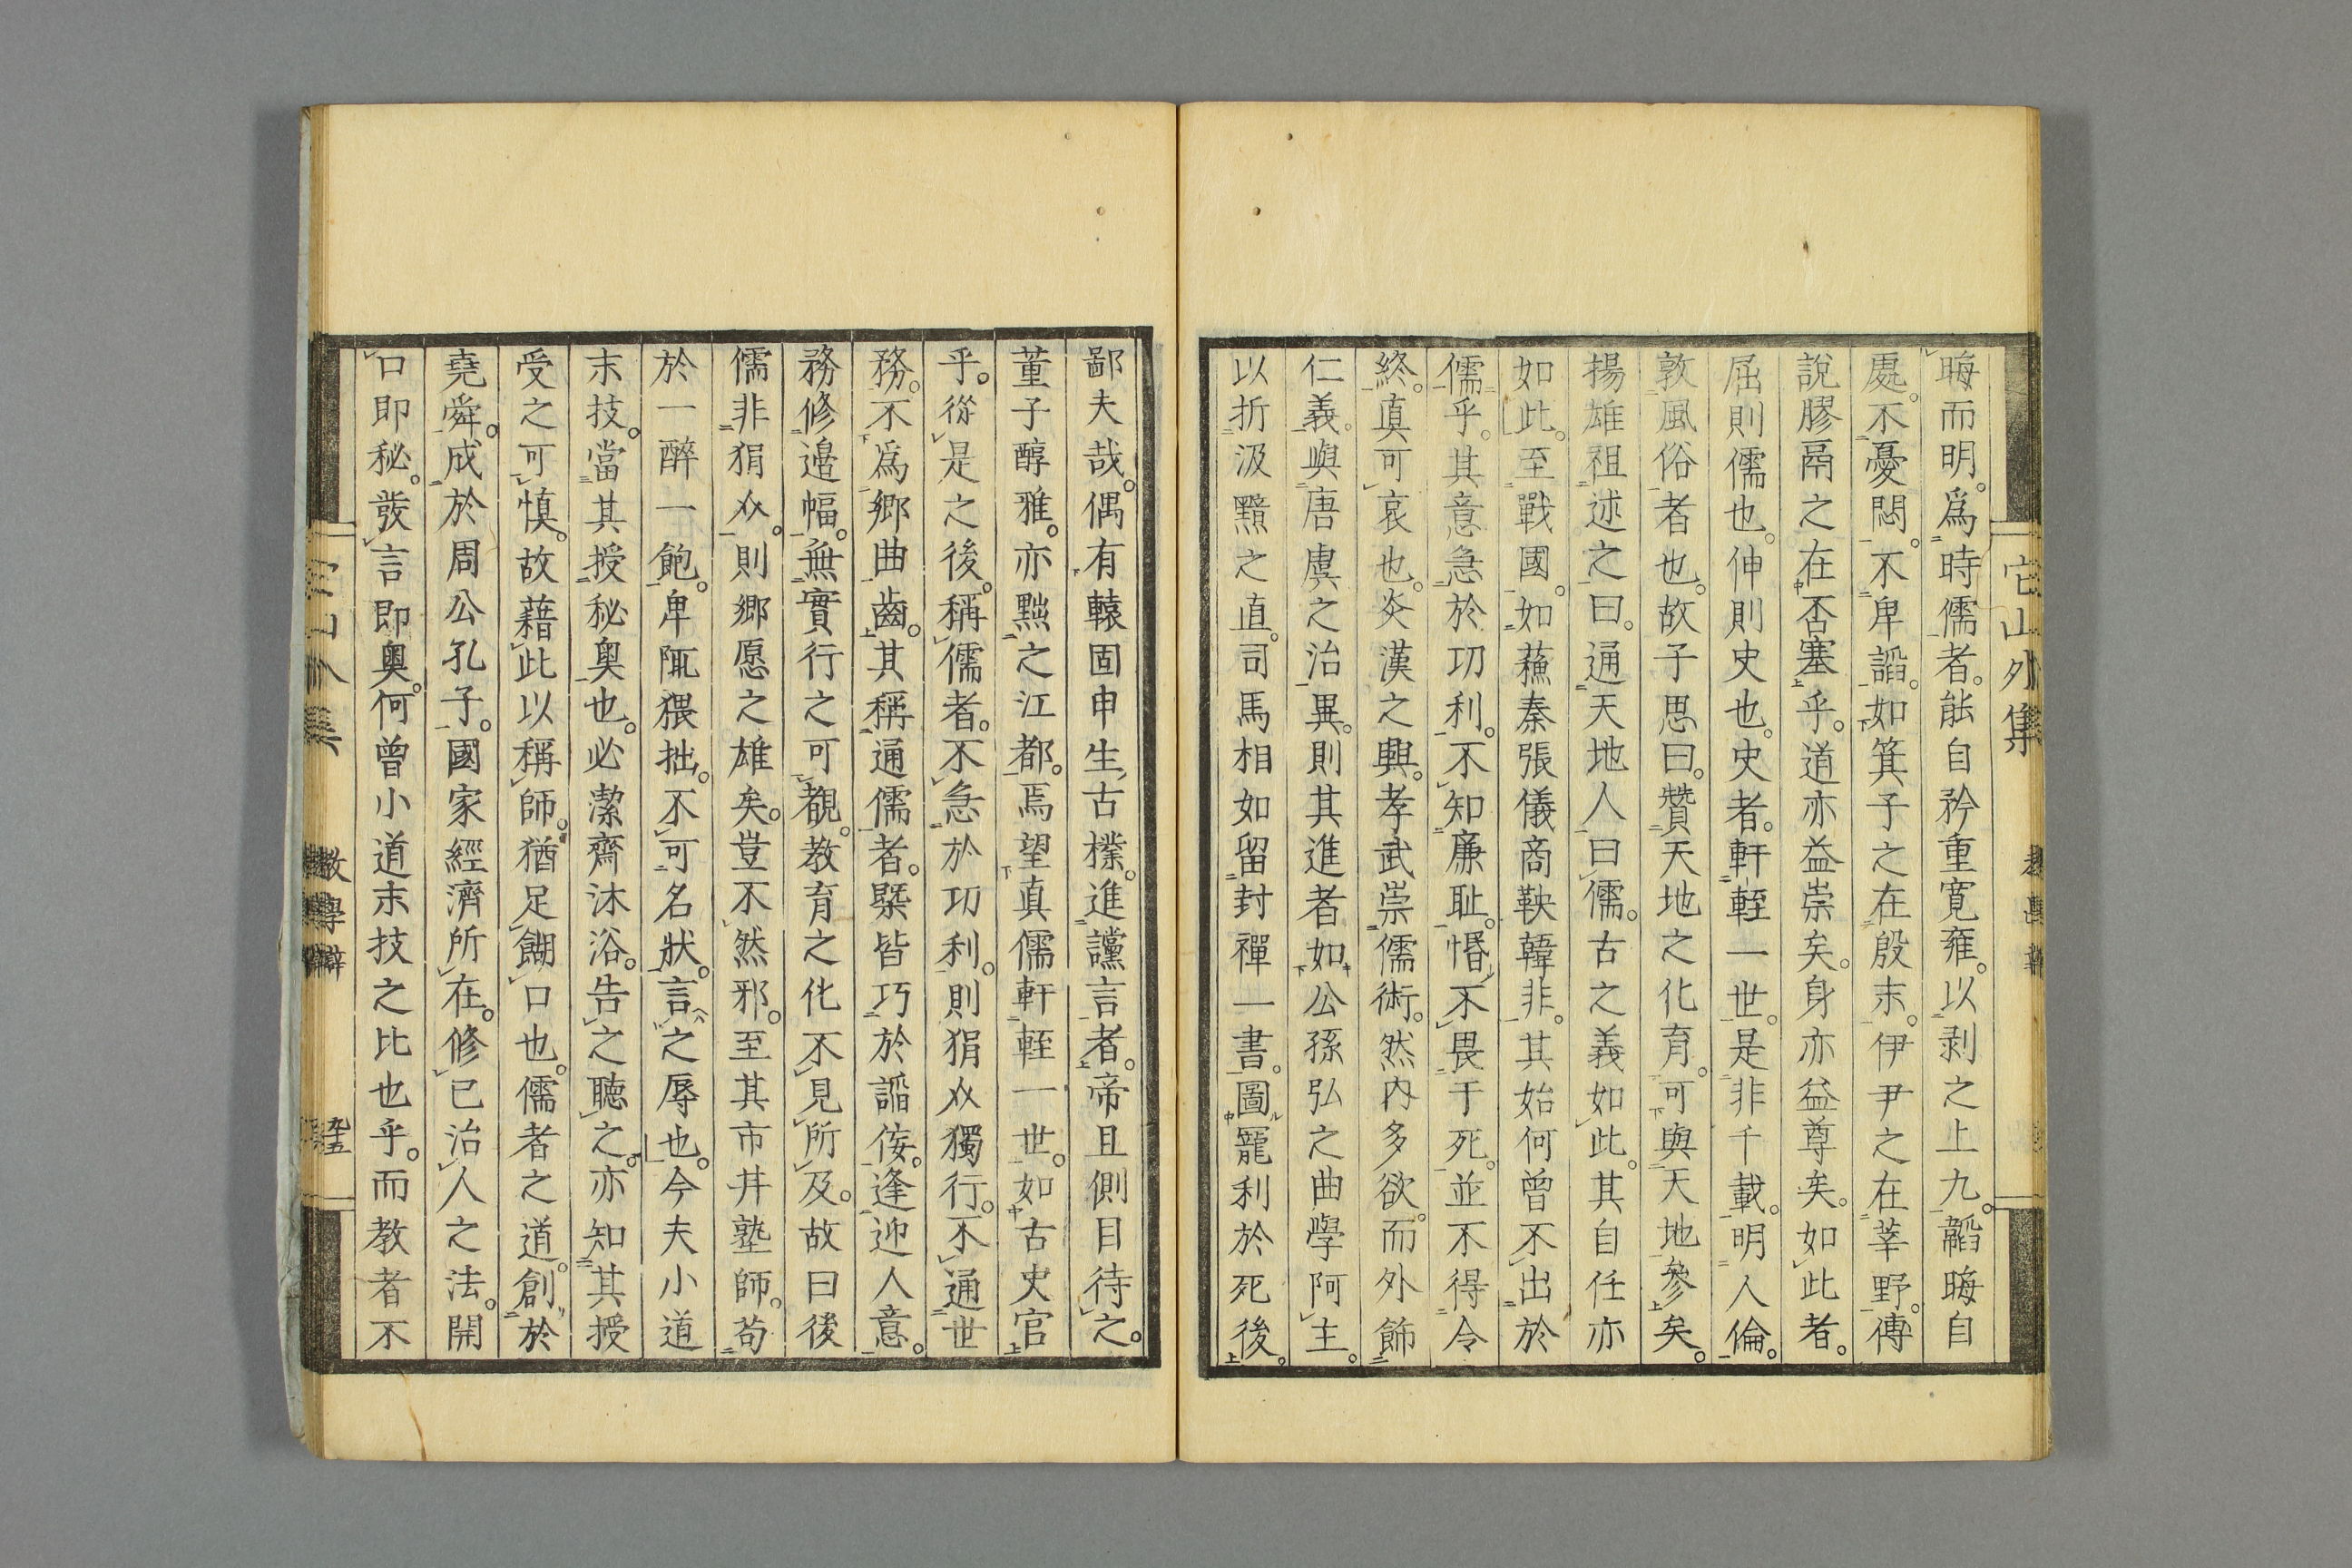 它山外集
晦而明。爲時儒者。能自矜重寛雍。以剥之上九。韜晦自
處。不憂悶。不卑謟。如箕子之在殷末。伊尹之在莘野。傅
說膠鬲之在否塞乎。道亦益崇矣。身亦益尊矣。如此者。
屈則儒也。伸則史也。史者。軒輊一世。是非千載。明人倫。
敦風俗者也。故子思曰。贊天地之化育。可與天地參矣。
揚雄祖述之曰。通天地人曰儒。古之義如此。其自任亦
如此。至戰國。如蘓秦張儀商鞅韓非。其始何曽不出於
儒乎。其意急於功利。不知廉耻。惛不畏于死。並不得令
終。真可哀也。炎漢之興。孝武崇儒術。然内多欲。而外飾
仁義。與唐虞之治異。則其進者如公孫弘之曲學阿主。
以折汲黯之直。司馬相如留封禪一書。圖寵利於死後。
鄙夫哉。偶有轅固申生古樸。進讜言者。帝且側目待之。
董子醇雅。亦黜之江都。焉望真儒軒輊一世。如古史官
乎。從是之後。稱儒者。不急於功利。則狷介獨行。不通世
務。不爲鄉曲齒。其稱通儒者。槩皆巧於謟侫。逢迎人意。
務修邉幅。無實行之可覩。教育之化不見所及。故曰後
儒非狷介。則郷愿之雄矣。豈不然邪。至其市井塾師。苟
於一醉一飽。卑陋猥拙。不可名狀。言之辱也。今夫小道
末技。當其授秘奥也。必潔齋沐浴。告之聽之。亦知其授
受之可慎。故藉此以稱師。猶足餬口也。儒者之道。創於
堯舜。成於周公孔子。國家經濟所在。修己治人之法。開
口即秘。發言即奥。何曽小道末技之比也乎。而教者不
教學辯
九十五